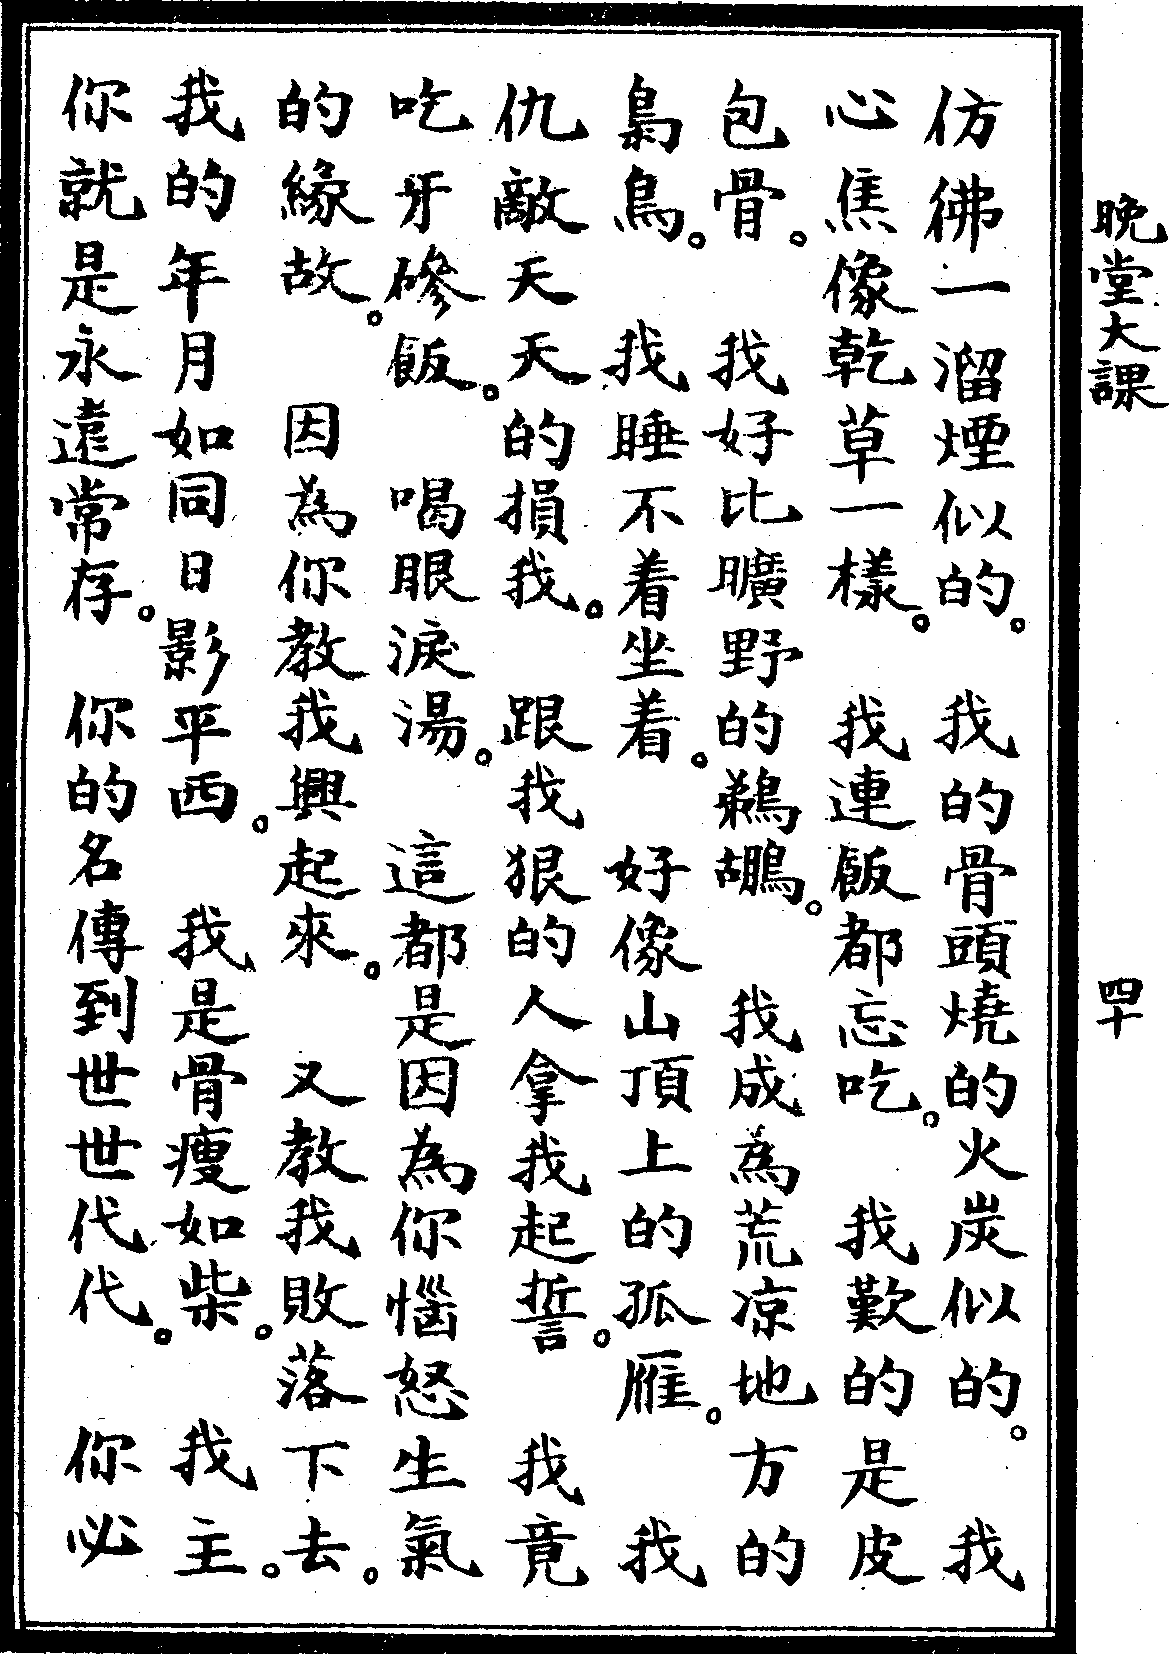 晚堂大課
四十
仿彿一溜煙似的。我的骨頭燒的火炭似的。我
心焦像乾草一樣。我連飯都忘吃。我歎的是皮
包骨。我好比曠野的鵜鶘。我成為荒凉地方的
梟鳥。我睡不着坐着。好像山頂上的孤雁。我
仇敵天天的損我。跟我狠的人拿我起誓。我竟
吃牙磣飯。喝眼淚湯。這都是因為你惱怒生氣
的緣故。因為你教我興起來。又教我敗落下去。
我的年月如同日影平西。我是骨瘦如柴。我主。
你就是永遠常存。你的名傳到世世代代。你必